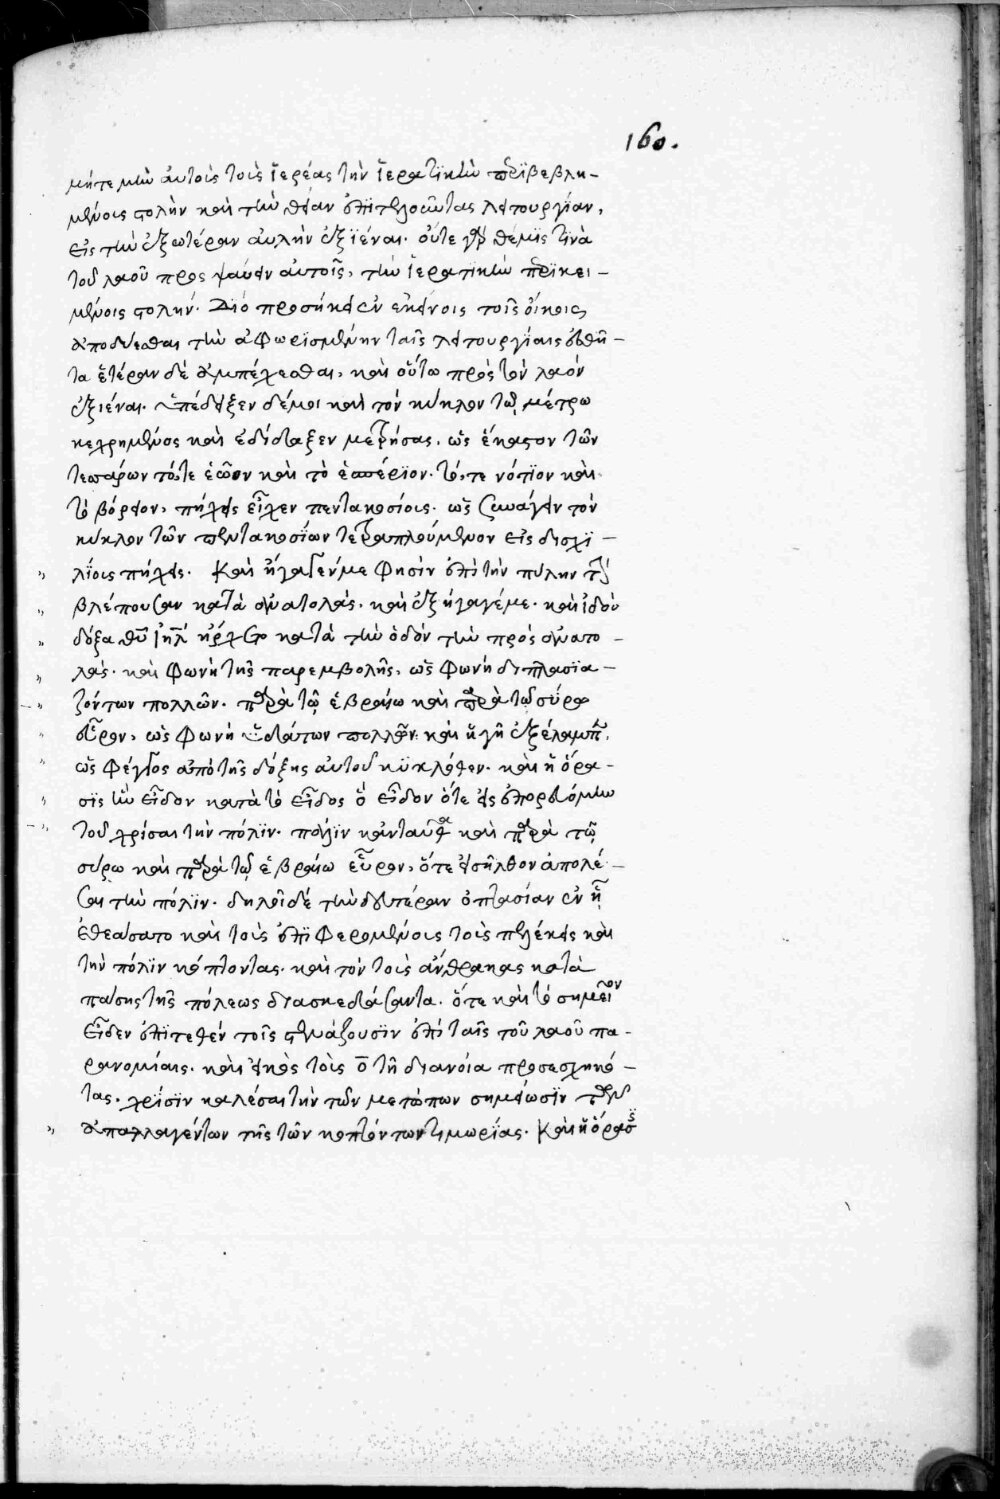 160.
μήτε μὴν αὐτοὺς τοὺς ἱερέας τὴν ἱερατικὴν περιβεβλη-
μένους στολὴν καὶ τὴν θείαν ἐπιτελοῦντας λειτουργίαν,
εἰς τὴν ἐξωτέραν αὐλὴν ἐξϊέναι. οὔτε γὰρ θέμις τινὰ
τοῦ λαοῦ προσψαύειν αὐτοῖς, τὴν ἱερατικὴν περικει-
μένοις στολήν. Διό προσήκειν ἐκείνοις τοῖς οἴκοις
ἀποδύεσθαι τὴν ἀφωρισμένην ταῖς λειτουργίαις ἐσθῆ-
τα ἑτέραν δὲ ἀμπέχεσθαι, καὶ οὕτω πρὸς τὸν λαόν
ἐξιέναι. ὑπέδειξεν δέ μοι καὶ τὸν κύκλον τῷ μέτρω
κεχρημένος καὶ ἐδίδαξεν μετρήσας, ὡς ἕκαστον τῶν
τεσσάρων τό, τε ἑῶον καὶ τὸ ἑσπέριον. τό, τε νότϊον καὶ
τὸ βόρειον, πήχεις εἶχεν πεντακοσίους. ὡς συνάγειν τὸν
κύκλον τῶν πεντακοσίων τετραπλούμενον εἰς δισχϊ-
λΐους πήχεις. Καὶ ἤγαγέν με φησὶν ἐπὶ τὴν πύλην τὴν
βλέπουσαν κατὰ ἀνατολὰς. καὶ ἐξήγαγέ με. καὶ ἰδοὺ
δόξα θῦ ἰηλ ἤρχετο κατὰ τὴν ὁδὸν τὴν πρὸς ἀνατο-
λάς. καὶ φωνὴ τῆς παρεμβολῆς, ὡς φωνὴ διπλασϊα-
ζόντων πολλῶν. παρὰ τῷ ἑβραίω καὶ παρὰ τῷ σύρω
εὗρον, ὡς φωνὴ ὑδάτων πολλῶν καὶ ἡ γῆ ἐξέλαμπεν,
ὡς φέγγος ἀπὸ τῆς δόξης αὐτοῦ κϋκλόθεν. καὶ ἡ ὅρα-
σϊς ἣν εἶδον κατὰ τὸ εἶδος ὃ εἶδον ὅτε εἰσεπορευόμην
τοῦ χρῖσαι τὴν πόλϊν. πάλϊν κἀνταῦθα καὶ παρὰ τῷ
σύρω καὶ παρὰ τῷ ἑβραίω εὗρον, ὅτε εἰσῆλθον ἀπολέ-
σαι τὴν πόλιν. δηλοῖ δέ τὴν δευτέραν ὀπτασίαν ἐν ᾗ
ἐθεάσατο καὶ τοὺς ἐπϊφερομένους τοὺς πελέκεις καὶ
τὴν πόλϊν κόπτοντας. καὶ τὸν τοὺς ἄνθρακας κατὰ
πάσης τῆς πόλεως διασκεδάσαντα. ὅτε καὶ τὸ σημεῖον
εἶδεν ἐπϊτεθέν τοῖς στενάζουσϊν ἐπὶ ταῖς τοῦ λαοῦ πα-
ρανομίαις. καὶ εἰκὸς τοὺς τῆ διανοία προσεσχηκό-
τας. χρίσϊν καλέσαι τὴν τῶν μετώπων σημείωσϊν τῶν
ἀπαλλαγέντων τῆς τῶν κοπτόντων τιμωρίας. Καὶ ἡ ὅρασϊς